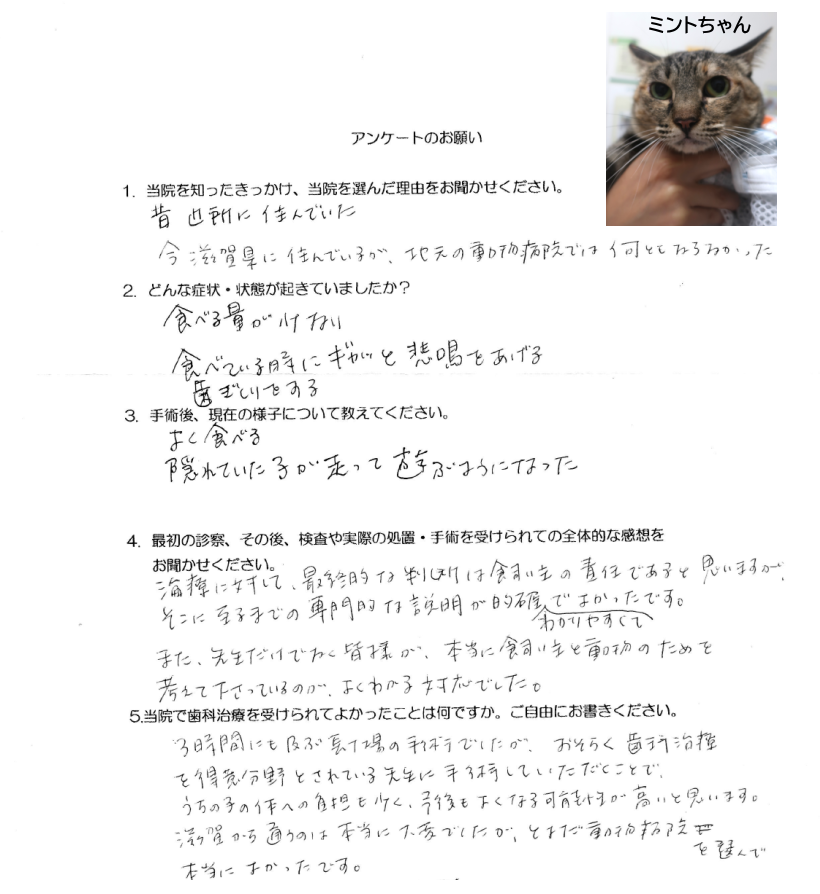 ミントちゃん
アンケートのお願い
1. 当院を知ったきっかけ、当院を選んだ理由をお聞かせください。
昔 近所に住んでいた
今 滋賀県に住んでいるが、地元の動物病院では何ともならなかった
2. どんな症状・状態が起きていましたか？
食べる量が少ない
食べている時にギャッと悲鳴をあげる
歯ぎしりをする
3. 手術後、現在の様子について教えてください。
よく食べる
隠れていた子が走って遊ぶようになった
4. 最初の診察、その後、検査や実際の処置・手術を受けられての全体的な感想を
お聞かせください。
治療に対して、最終的な判断は飼い主の責任であると思いますが、
そこに至るまでの専門的な説明が的確でよかったです。
わかりやすくて
また、先生だけでなく皆様が、本当に飼い主と動物のためを
考えて下さっているのが、よくわかる対応でした。
5.当院で歯科治療を受けられてよかったことは何ですか。ご自由にお書きください。
3時間にも及ぶ長丁場の手術でしたが、おそらく歯科治療
を得意分野とされている先生に手術していただくことで、
うちの子の体への負担も少く、今後もよくなる可能性が高いと思います。
滋賀から通うのは本当に大変でしたが、とまだ動物病院
を選んで
本当によかったです。